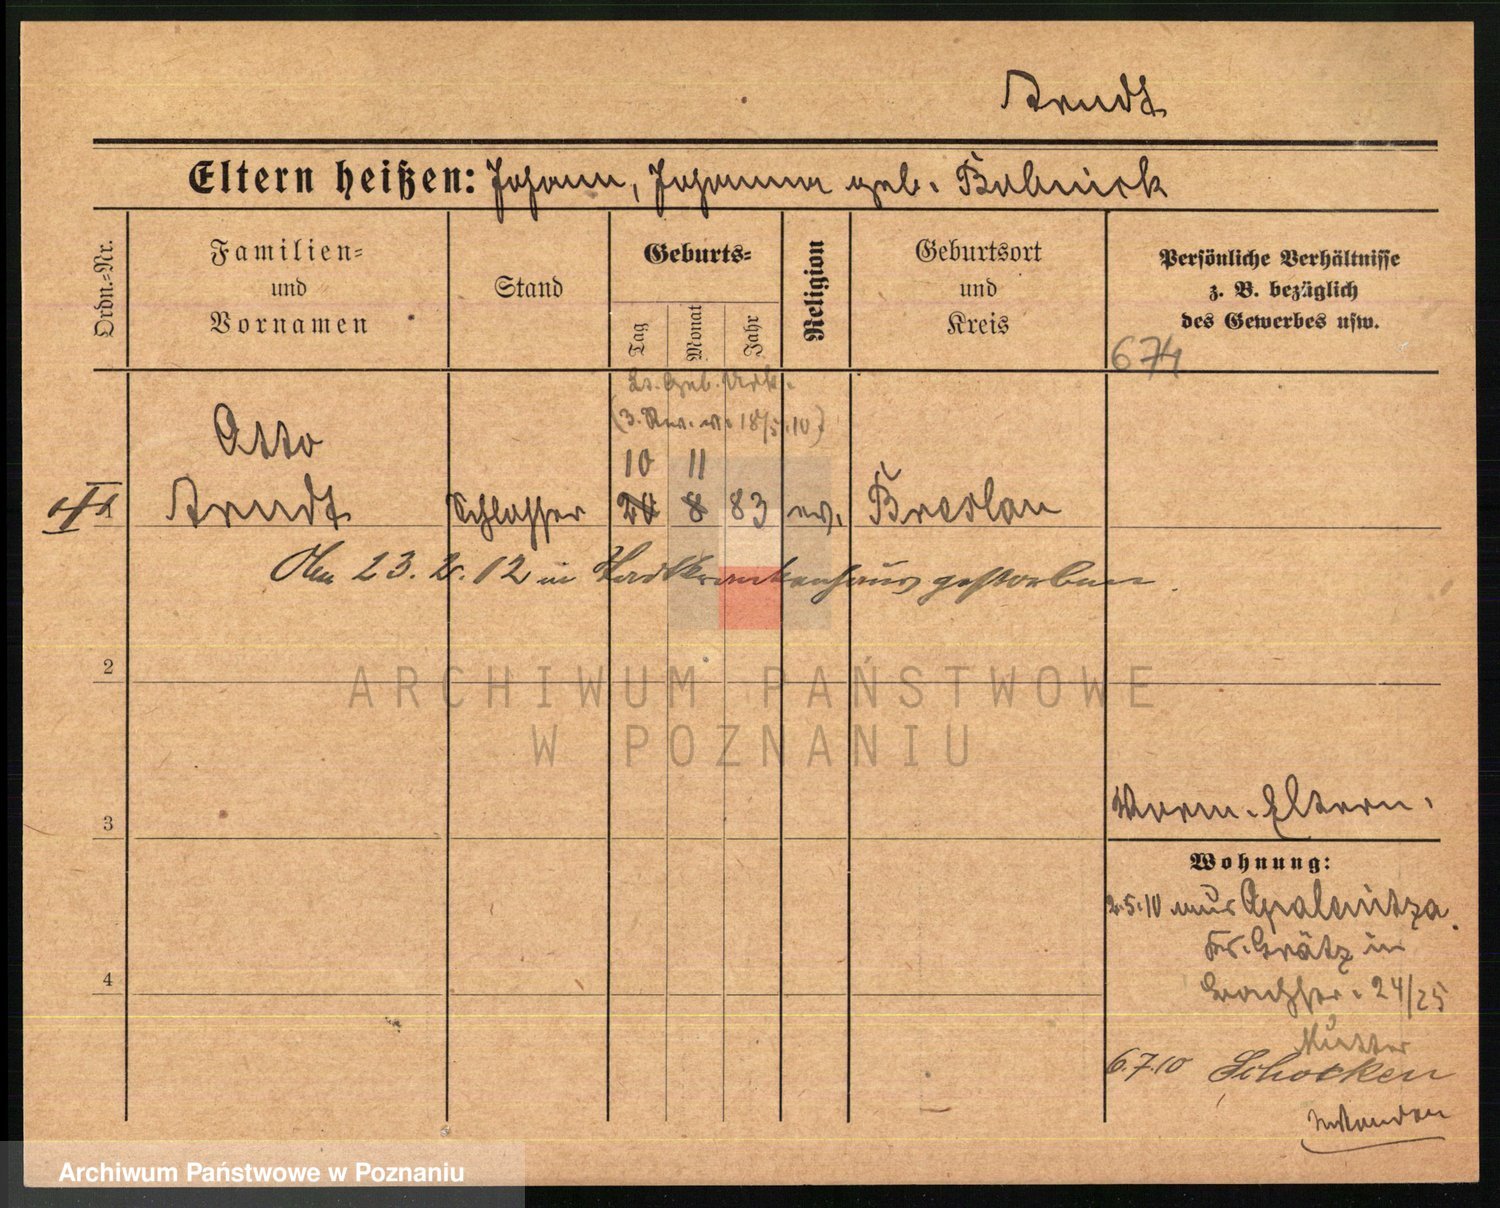 Arndt
Eltern heißen: Johann, Johanna geb. Bobnick
Ordn.-Nr.
Familien- und Vornamen
Stand
Geburts-
Tag
Monat
Jahr
Religion
Geburtsort und Kreis
Persönliche Verhältnisse z. B. bezüglich des Gewerbes usw.
674
Lt. Geb. Urk.
(3. Rev. v. 18/5.10)
Otto
10 11
1 Arndt Schlosser 20 8 83 ev. Breslau
Am 23. 2. 12 in Stadtkrankenhaus gestorben
2
3
4
Vorm. Eltern.
Wohnung:
2.5.10 aus Opalenitza
Kr. Grätz in
24/25
Mutter
6.7.10 Schocken
ARCHIWUM PAŃSTWOWE
W POZNANIU
Archiwum Państwowe w Poznaniu